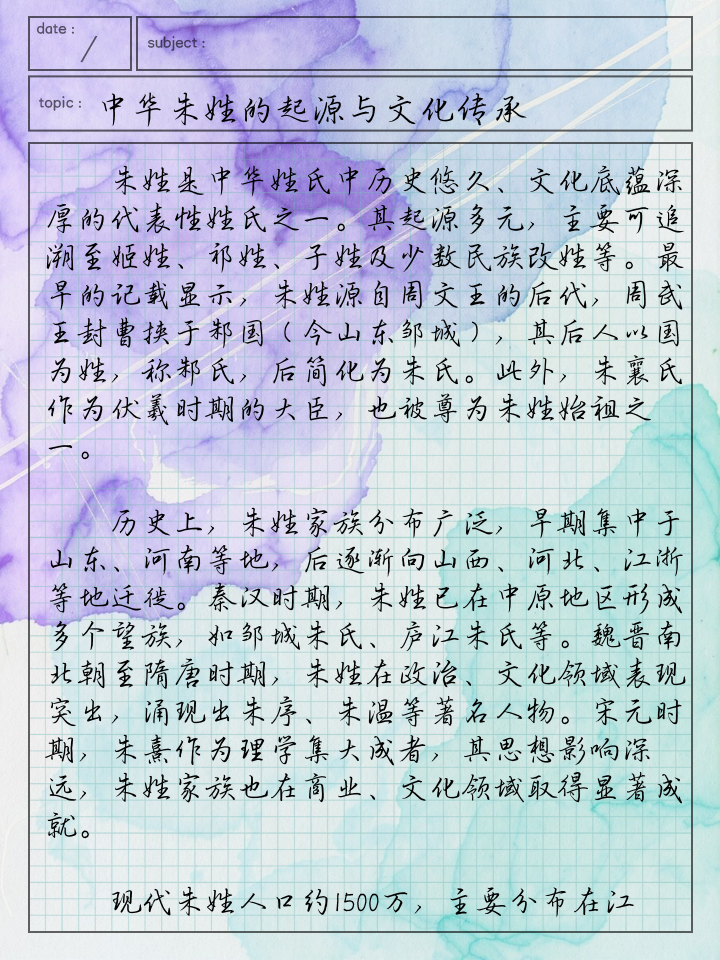 date :
/
subject :
topic : 中华朱姓的起源与文化传承
朱姓是中华姓氏中历史悠久、文化底蕴深
厚的代表性姓氏之一。其起源多元，主要可追
溯至姬姓、祁姓、子姓及少数民族改姓等。最
早的记载显示，朱姓源自周文王的后代，周武
王封曹挟于邾国（今山东邹城），其后人以国
为姓，称邾氏，后简化为朱氏。此外，朱襄氏
作为伏羲时期的大臣，也被尊为朱姓始祖之
一。
历史上，朱姓家族分布广泛，早期集中于
山东、河南等地，后逐渐向山西、河北、江浙
等地迁徙。秦汉时期，朱姓已在中原地区形成
多个望族，如邹城朱氏、庐江朱氏等。魏晋南
北朝至隋唐时期，朱姓在政治、文化领域表现
突出，涌现出朱序、朱温等著名人物。宋元时
期，朱熹作为理学集大成者，其思想影响深
远，朱姓家族也在商业、文化领域取得显著成
就。
现代朱姓人口约1500万，主要分布在江